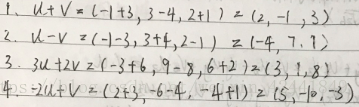 1. u+v=(-1+3, 3-4, 2+1)=(2,-1,3)
2. u-v=(-1-3, 3+4, 2-1)=(-4,7,1)
3. 3u+2v=(-3+6, 9-8, 6+2)=(3,1,8)
4. -2u+v=(2+3, -6-4, -4+1)=(5,-10,-3)